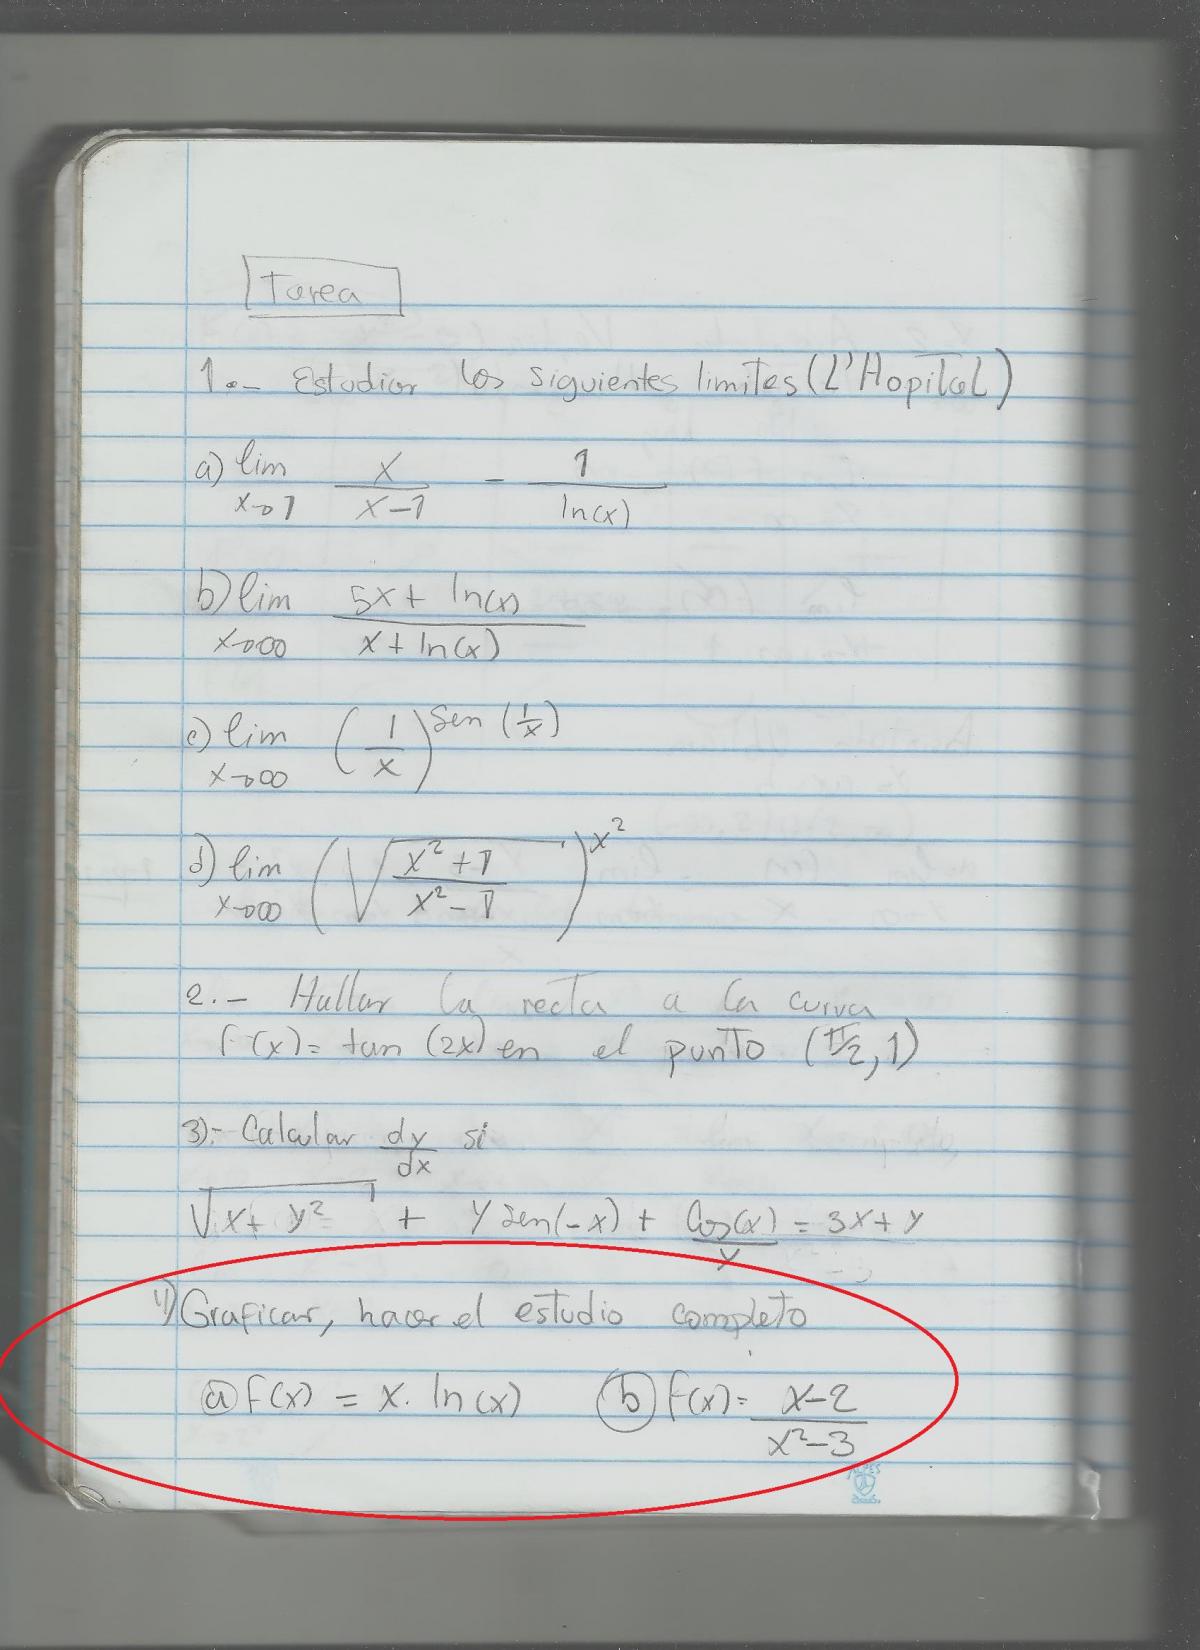 Tarea
1.- Estudiar los siguientes limites (L'Hopital)
a) lim x→1 x/(x-1) - 1/ln(x)
b) lim x→∞ (5x + ln(x))/(x + ln(x))
c) lim x→∞ (1/x)^sen(1/x)
d) lim x→∞ (√((x²+1)/(x²-1)))^x²
2.- Hallar la recta a la curva
f(x) = tan (2x) en el punto (π/2, 1)
3).- Calcular dy/dx si
√(x + y²) + y sen(-x) + Cos(x)/y = 3x + y
4) Graficar, hacer el estudio completo
a) f(x) = x. ln(x) b) f(x) = (x-2)/(x²-3)
ALPES